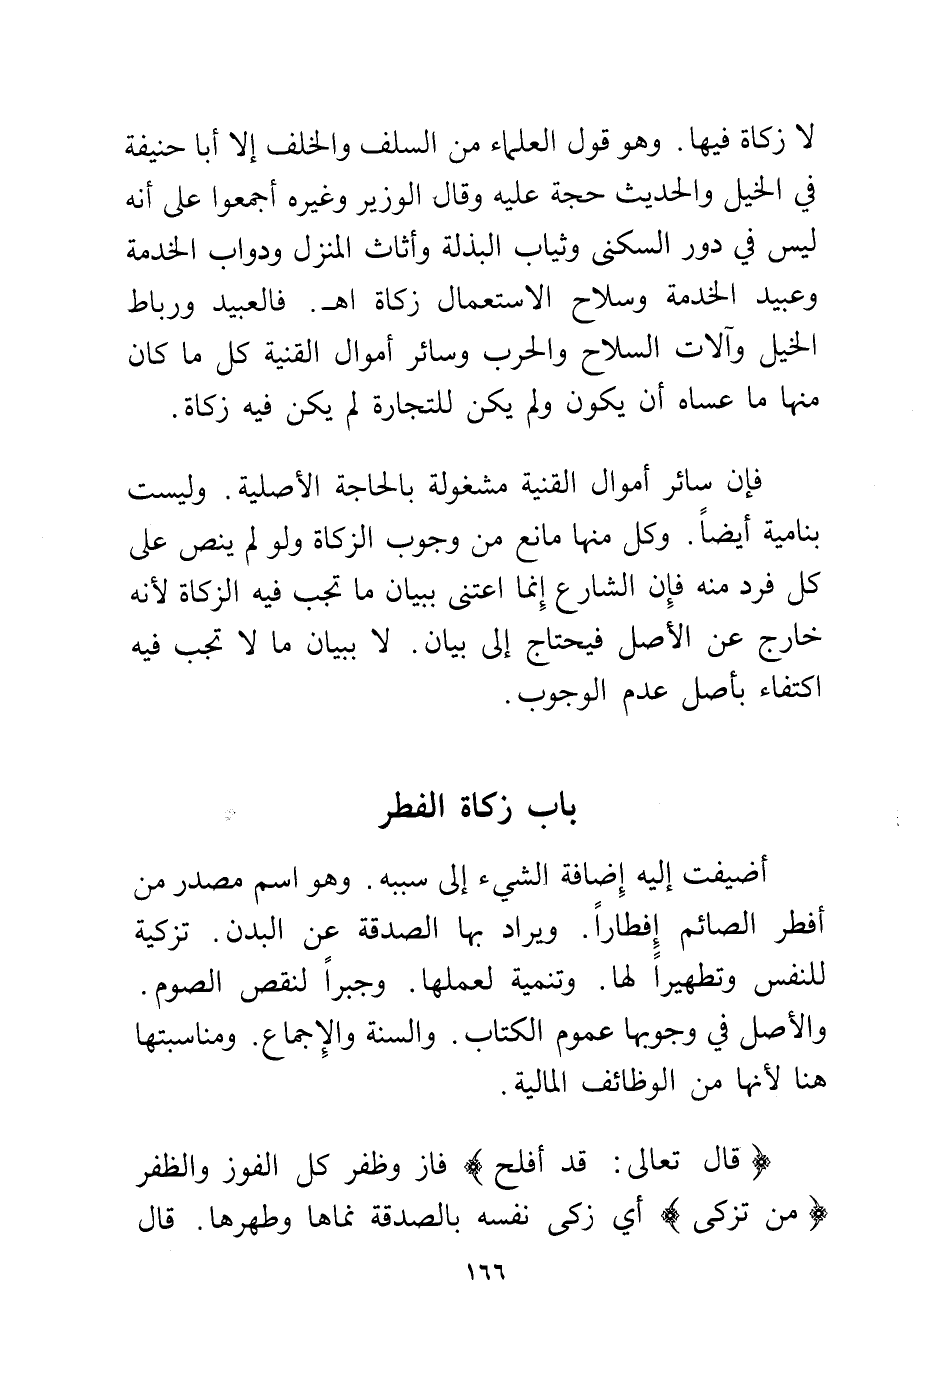 لا زكاة فيها. وهو قول العلماء من السلف والخلف إلا أبا حنيفة
في الخيل والحديث حجة عليه وقال الوزير وغيره أجمعوا على أنه
ليس في دور السكنى وثياب البذلة وأثاث المنزل ودواب الخدمة
وعبيد الخدمة وسلاح الاستعمال زكاة اهـ. فالعبيد ورباط
الخيل وآلات السلاح والحرب وسائر أموال القنية كل ما كان
منها ما عساه أن يكون ولم يكن للتجارة لم يكن فيه زكاة.
فإن سائر أموال القنية مشغولة بالحاجة الأصلية. وليست
بنامية أيضاً. وكل منها مانع من وجوب الزكاة ولو لم ينص على
كل فرد منه فإن الشارع إنما اعتنى ببيان ما تجب فيه الزكاة لأنه
خارج عن الأصل فيحتاج إلى بيان. لا ببيان ما لا تجب فيه
اكتفاء بأصل عدم الوجوب.
باب زكاة الفطر
أضيفت إليه إضافة الشيء إلى سببه. وهو اسم مصدر من
أفطر الصائم إفطاراً. ويراد بها الصدقة عن البدن. تزكية
للنفس وتطهيراً لها. وتنمية لعملها. وجبراً لنقص الصوم.
والأصل في وجوبها عموم الكتاب. والسنة والإجماع. ومناسبتها
هنا لأنها من الوظائف المالية.
﴿ قال تعالى: قد أفلح ﴾ فاز وظفر كل الفوز والظفر
﴿ من تزكى ﴾ أي زكى نفسه بالصدقة نماها وطهرها. قال
١٦٦